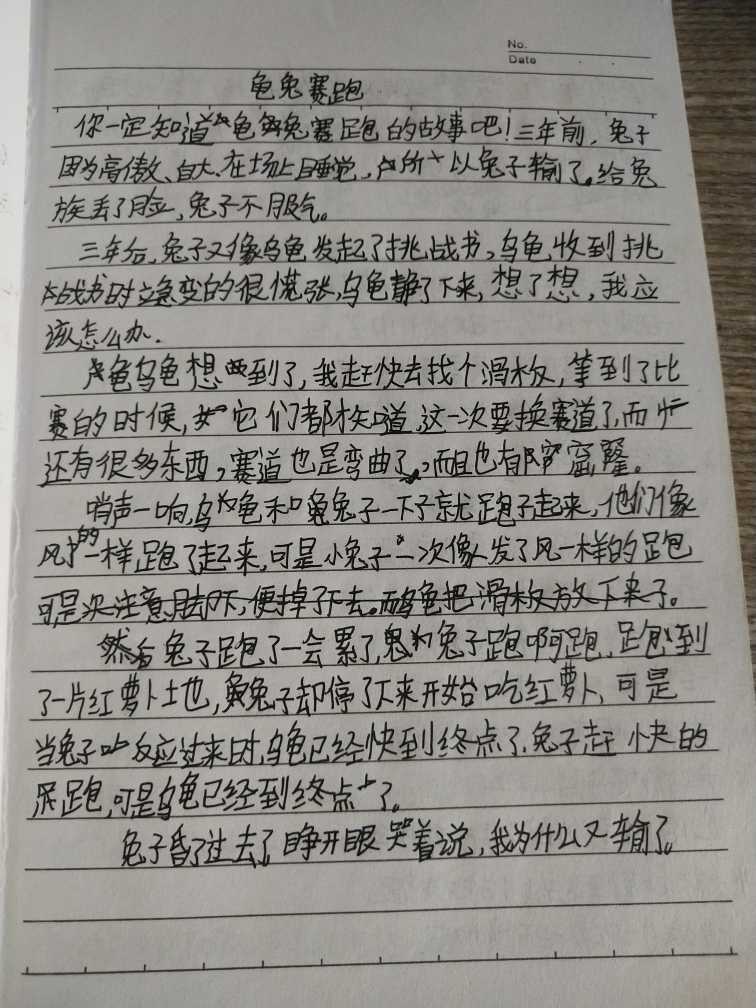 No.
Date
龟兔赛跑
你一定知道龟兔赛跑的故事吧！三年前，兔子
因为高傲、自大、在场上睡觉，所以兔子输了。给兔
族丢了脸，兔子不服气。
三年后，兔子又像乌龟发起了挑战书，乌龟收到挑
战书时立急变的很慌张，乌龟静了下来，想了想，我应
该怎么办.
乌龟想到了，我赶快去找个滑板，等到了比
赛的时候，它们都才知道，这一次要换赛道了，而
还有很多东西，赛道也是弯曲了，而且也有
哨声一响，乌龟和兔子一下子就跑了起来，他们像
风的一样跑了起来，可是小兔子一次像发了风一样的跑
可是没注意脚下，便掉了下去。而乌龟把滑板放下来了。
然后兔子跑了一会累了，兔子跑啊跑，跑到
了一片红萝卜土地，兔子却停了下来开始吃红萝卜，可是
当兔子反应过来时，乌龟已经快到终点了，兔子赶快的
跑，可是乌龟已经到终点了。
兔子昏了过去了睁开眼哭着说，我为什么又输了。